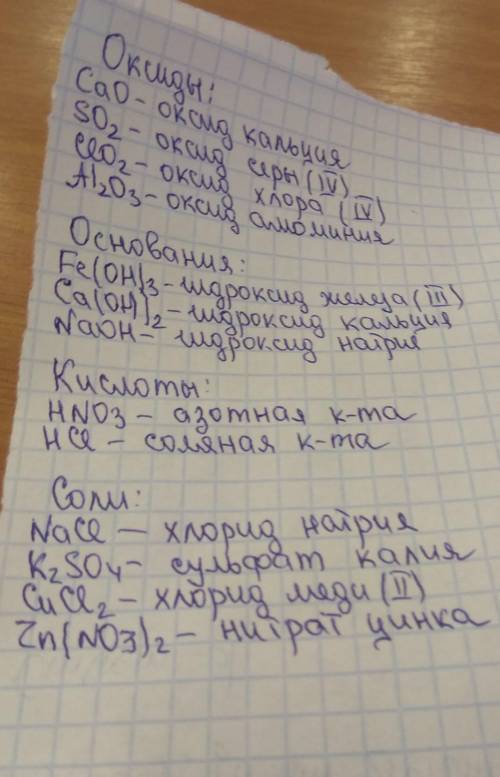 Оксиды:
CaO - оксид кальция
SO2 - оксид серы (IV)
ClO2 - оксид хлора (IV)
Al2O3 - оксид алюминия
Основания:
Fe(OH)3 - гидроксид железа (III)
Ca(OH)2 - гидроксид кальция
NaOH - гидроксид натрия
Кислоты:
HNO3 - азотная к-та
HCl - соляная к-та
Соли:
NaCl - хлорид натрия
K2SO4 - сульфат калия
CuCl2 - хлорид меди (II)
Zn(NO3)2 - нитрат цинка